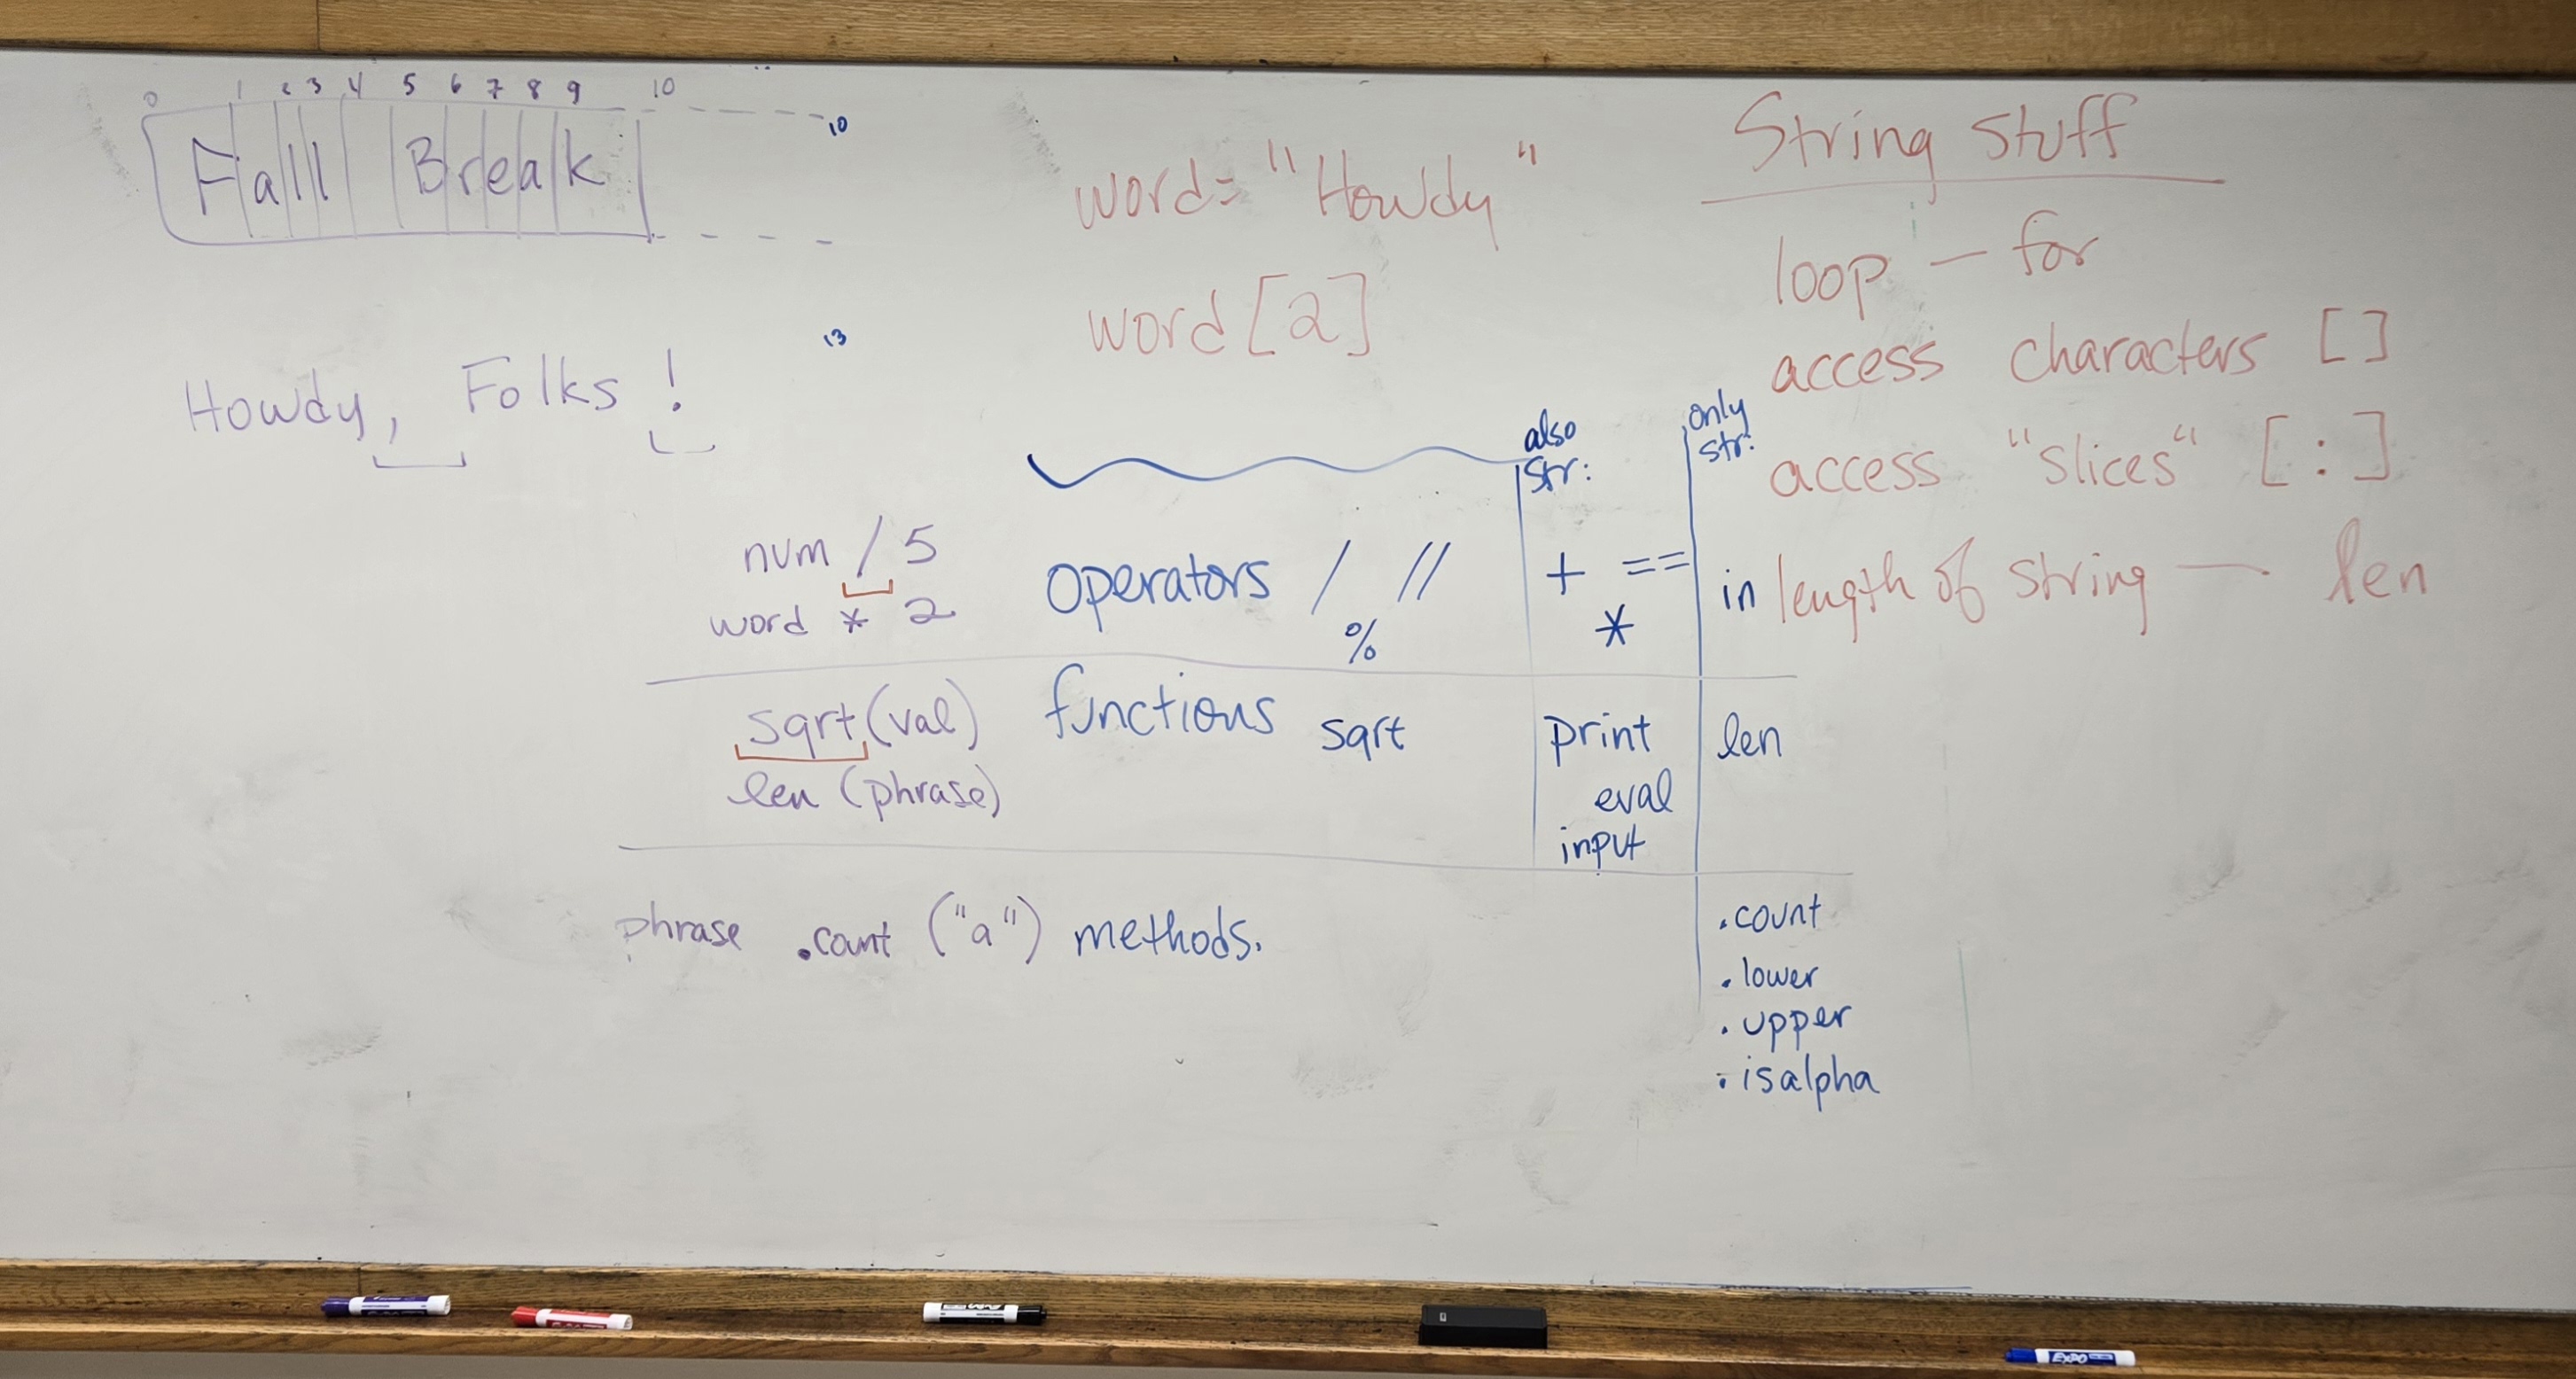 0 1 2 3 4 5 6 7 8 9 10
Fall Break
10
Howdy, Folks !
13
word= "Howdy"
word[2]
String Stuff
loop — for
access characters [ ]
access "slices" [ : ]
length of string — len
also
str:
only
str:
num / 5
word * 2
operators / //
%
+ ==
*
in
sqrt(val)
len (phrase)
functions sqrt
print
eval
input
len
phrase .count ("a") methods.
.count
.lower
.upper
.isalpha
EXPO